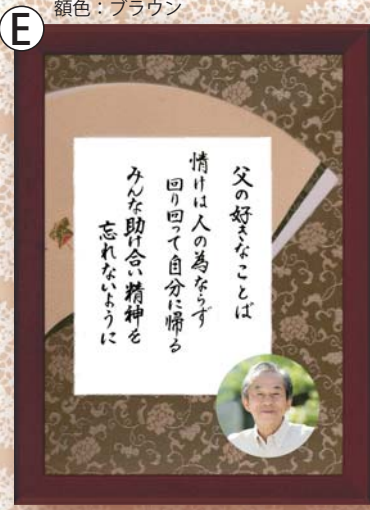 額色：ブラウン
E
父の好きなことば
情けは人の為ならず
回り回って自分に帰る
みんな助け合い精神を
忘れないように